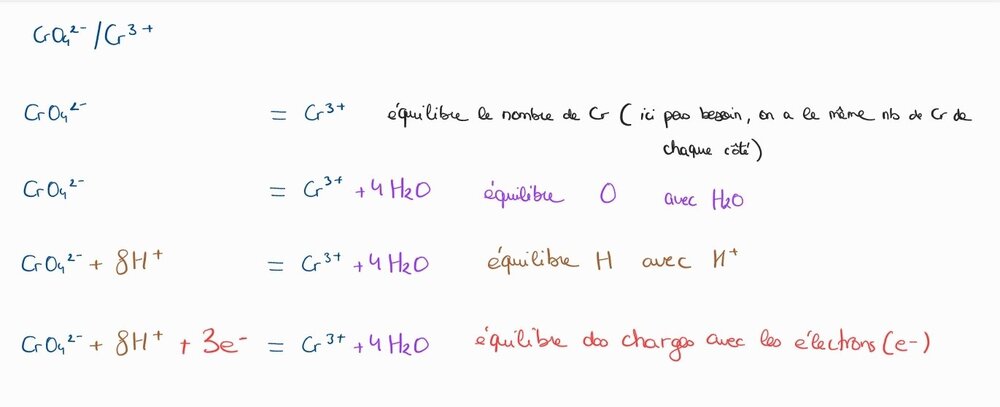 CrO₄²⁻/Cr³⁺
CrO₄²⁻ = Cr³⁺ équilibre le nombre de Cr ( ici pas besoin, on a le même nb de Cr de
chaque côté)
CrO₄²⁻ = Cr³⁺ + 4H₂O équilibre O avec H₂O
CrO₄²⁻ + 8H⁺ = Cr³⁺ + 4H₂O équilibre H avec H⁺
CrO₄²⁻ + 8H⁺ + 3e⁻ = Cr³⁺ + 4H₂O équilibre des charges avec les électrons (e-)